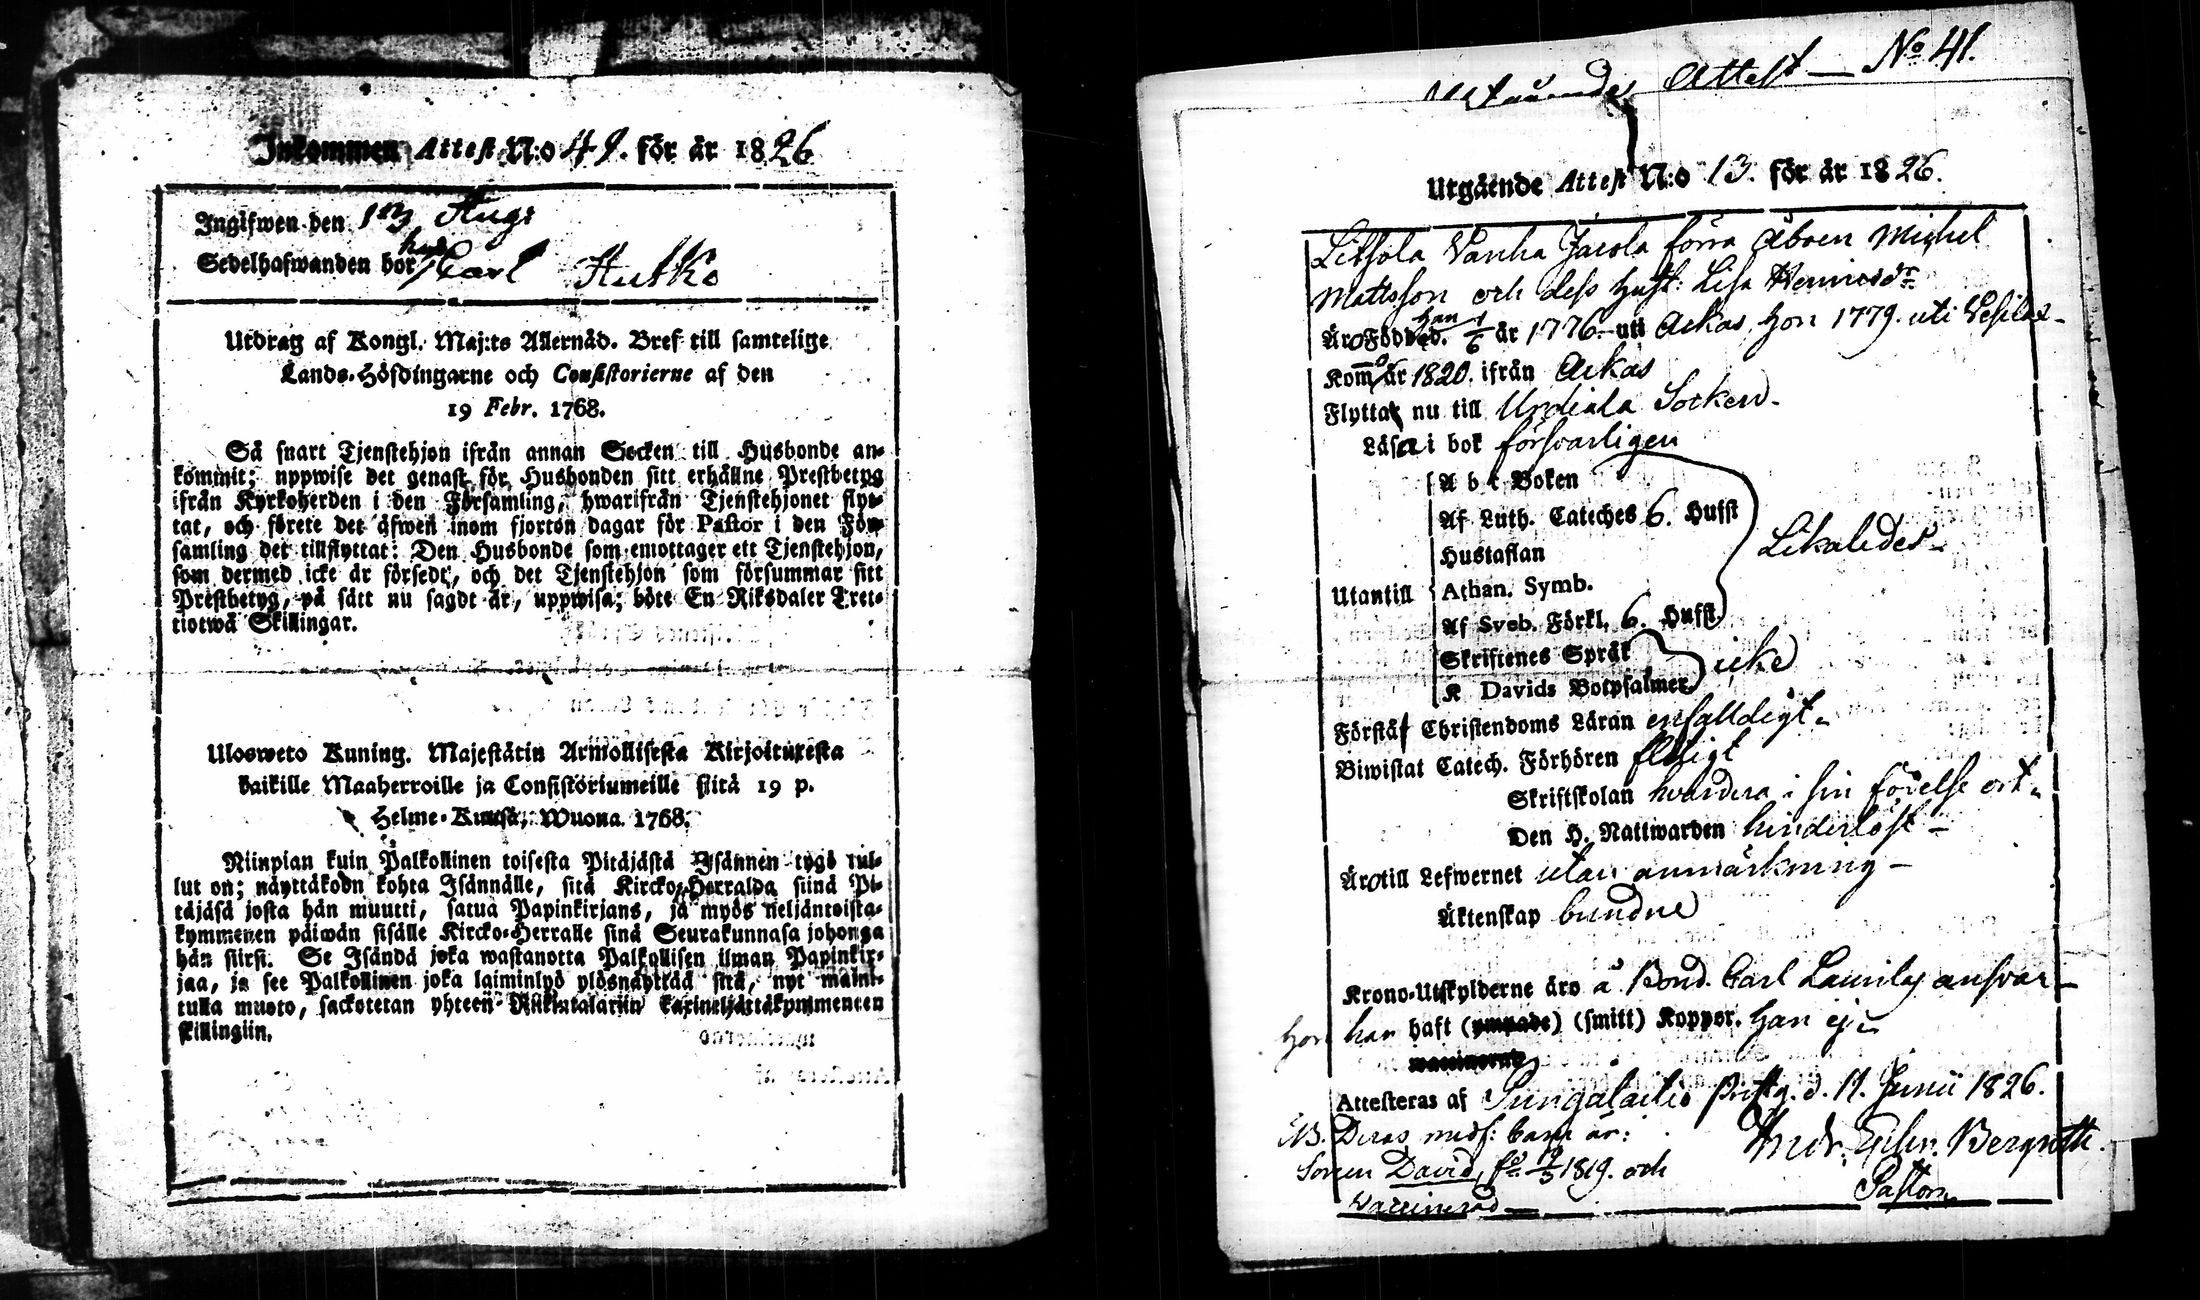 Inkommen Attest N:o 49. för år 1826
Ingifwen den 1 Aug:
Sedelhafwanden bor hos Carl Hutko
Utdrag af Kongl. Maj:ts Allernåd. Bref till samtelige
Lands-Höfdingarne och Consistorierne af den
19 Febr. 1768.
Så snart Tjenstehjon ifrån annan Socken till Husbonde an-
kommit; uppwise det genast för Husbonden sitt erhållne Prestbetyg
ifrån Kyrkoherden i den Församling, hwarifrån Tjenstehjonet flyt-
tat, och förete det äfwen inom fjorton dagar för Pastor i den För-
samling det tillflyttat: Den Husbonde som emottager ett Tjenstehjon,
som dermed icke är försedt, och det Tjenstehjon som försummar sitt
Prestbetyg, på sätt nu sagdt är, uppwisa; böte En Riksdaler Tret-
tiotwå Skillingar.
Ulosweto Kuning. Majestätin Armollisesta Kirjoituxesta
kaikille Maaherroille ja Consistoriumeille siitä 19 p.
Helme-Kuusa, Wuona 1768.
Niinpian kuin Palkollinen toisesta Pitäjästä Isännen tygö tul-
lut on; näyttäkoön kohta Isännälle, sitä Kircko-Herralda siinä Pi-
täjäsä josta hän muutti, saatua Papinkirjans, ja myös neljäntoista-
kymmenen päiwän sisälle Kircko-Herralle sinä Seurakunnasa johonga
hän siirsi. Se Isändä joka wastanotta Palkollisen ilman Papinkir-
jaa, ja see Palkollinen joka laiminlyö ylösnäyttää sitä, nyt maini-
tulla muoto, sackotetan yhteen Riikintalariin kaxineljättäkymmenen
skillingiin.
Utgående Attest — No 41.
Utgående Attest N:o 13. för år 1826.
Vanha Jacola förra Åboen Michel
Mattsson och dess Hust: Lisa Henricsdr
Äro Född d. Han 1/6 år 1776 uti Ackas, Hon 1779. uti
Kommo år 1820. ifrån Ackas
Flytta nu till Urdiala Socken
Läsa i bok försvarligen
A b c Boken
Af Luth. Cateches 6. Hufst
Hustaflan
Likaledes
Utantill Athan. Symb.
Af Sveb. Förkl. 6. Hufst.
Skriftenes Språk
icke
K Davids Botpsalmer
Förstå Christendoms Läran enfalldigt
Biwistat Catech. Förhören flitigt
Skriftskolan hvardera i sin födelse ort
Den H. Nattwarden hinderlöst —
Äro till Lefwernet utan anmärkning —
Äktenskap bundne
Krono-Utskylderne äro å Bond. Carl Laurila ansvar —
Hon har haft (ympade) (smitt) Koppor. Han ej
Attesteras af Prästg. d. 11. Junii 1826.
NB. Deras medf: barn är:
Sonen David, fd 1819. och
Vaccinerad —
Bergroth
Pastor